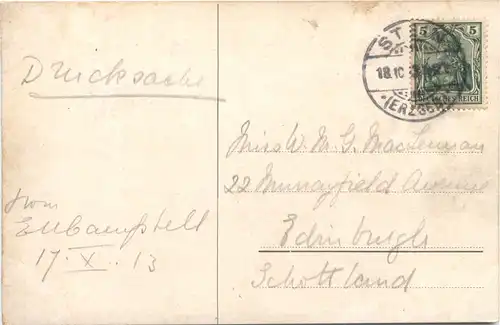 Drucksache
from
17·X·13
5 5
ST
18.10
(ERZGEB
REICH
Miss W. M. G. MacLennan
22 Murrayfield Avenue
Edinburgh
Schottland